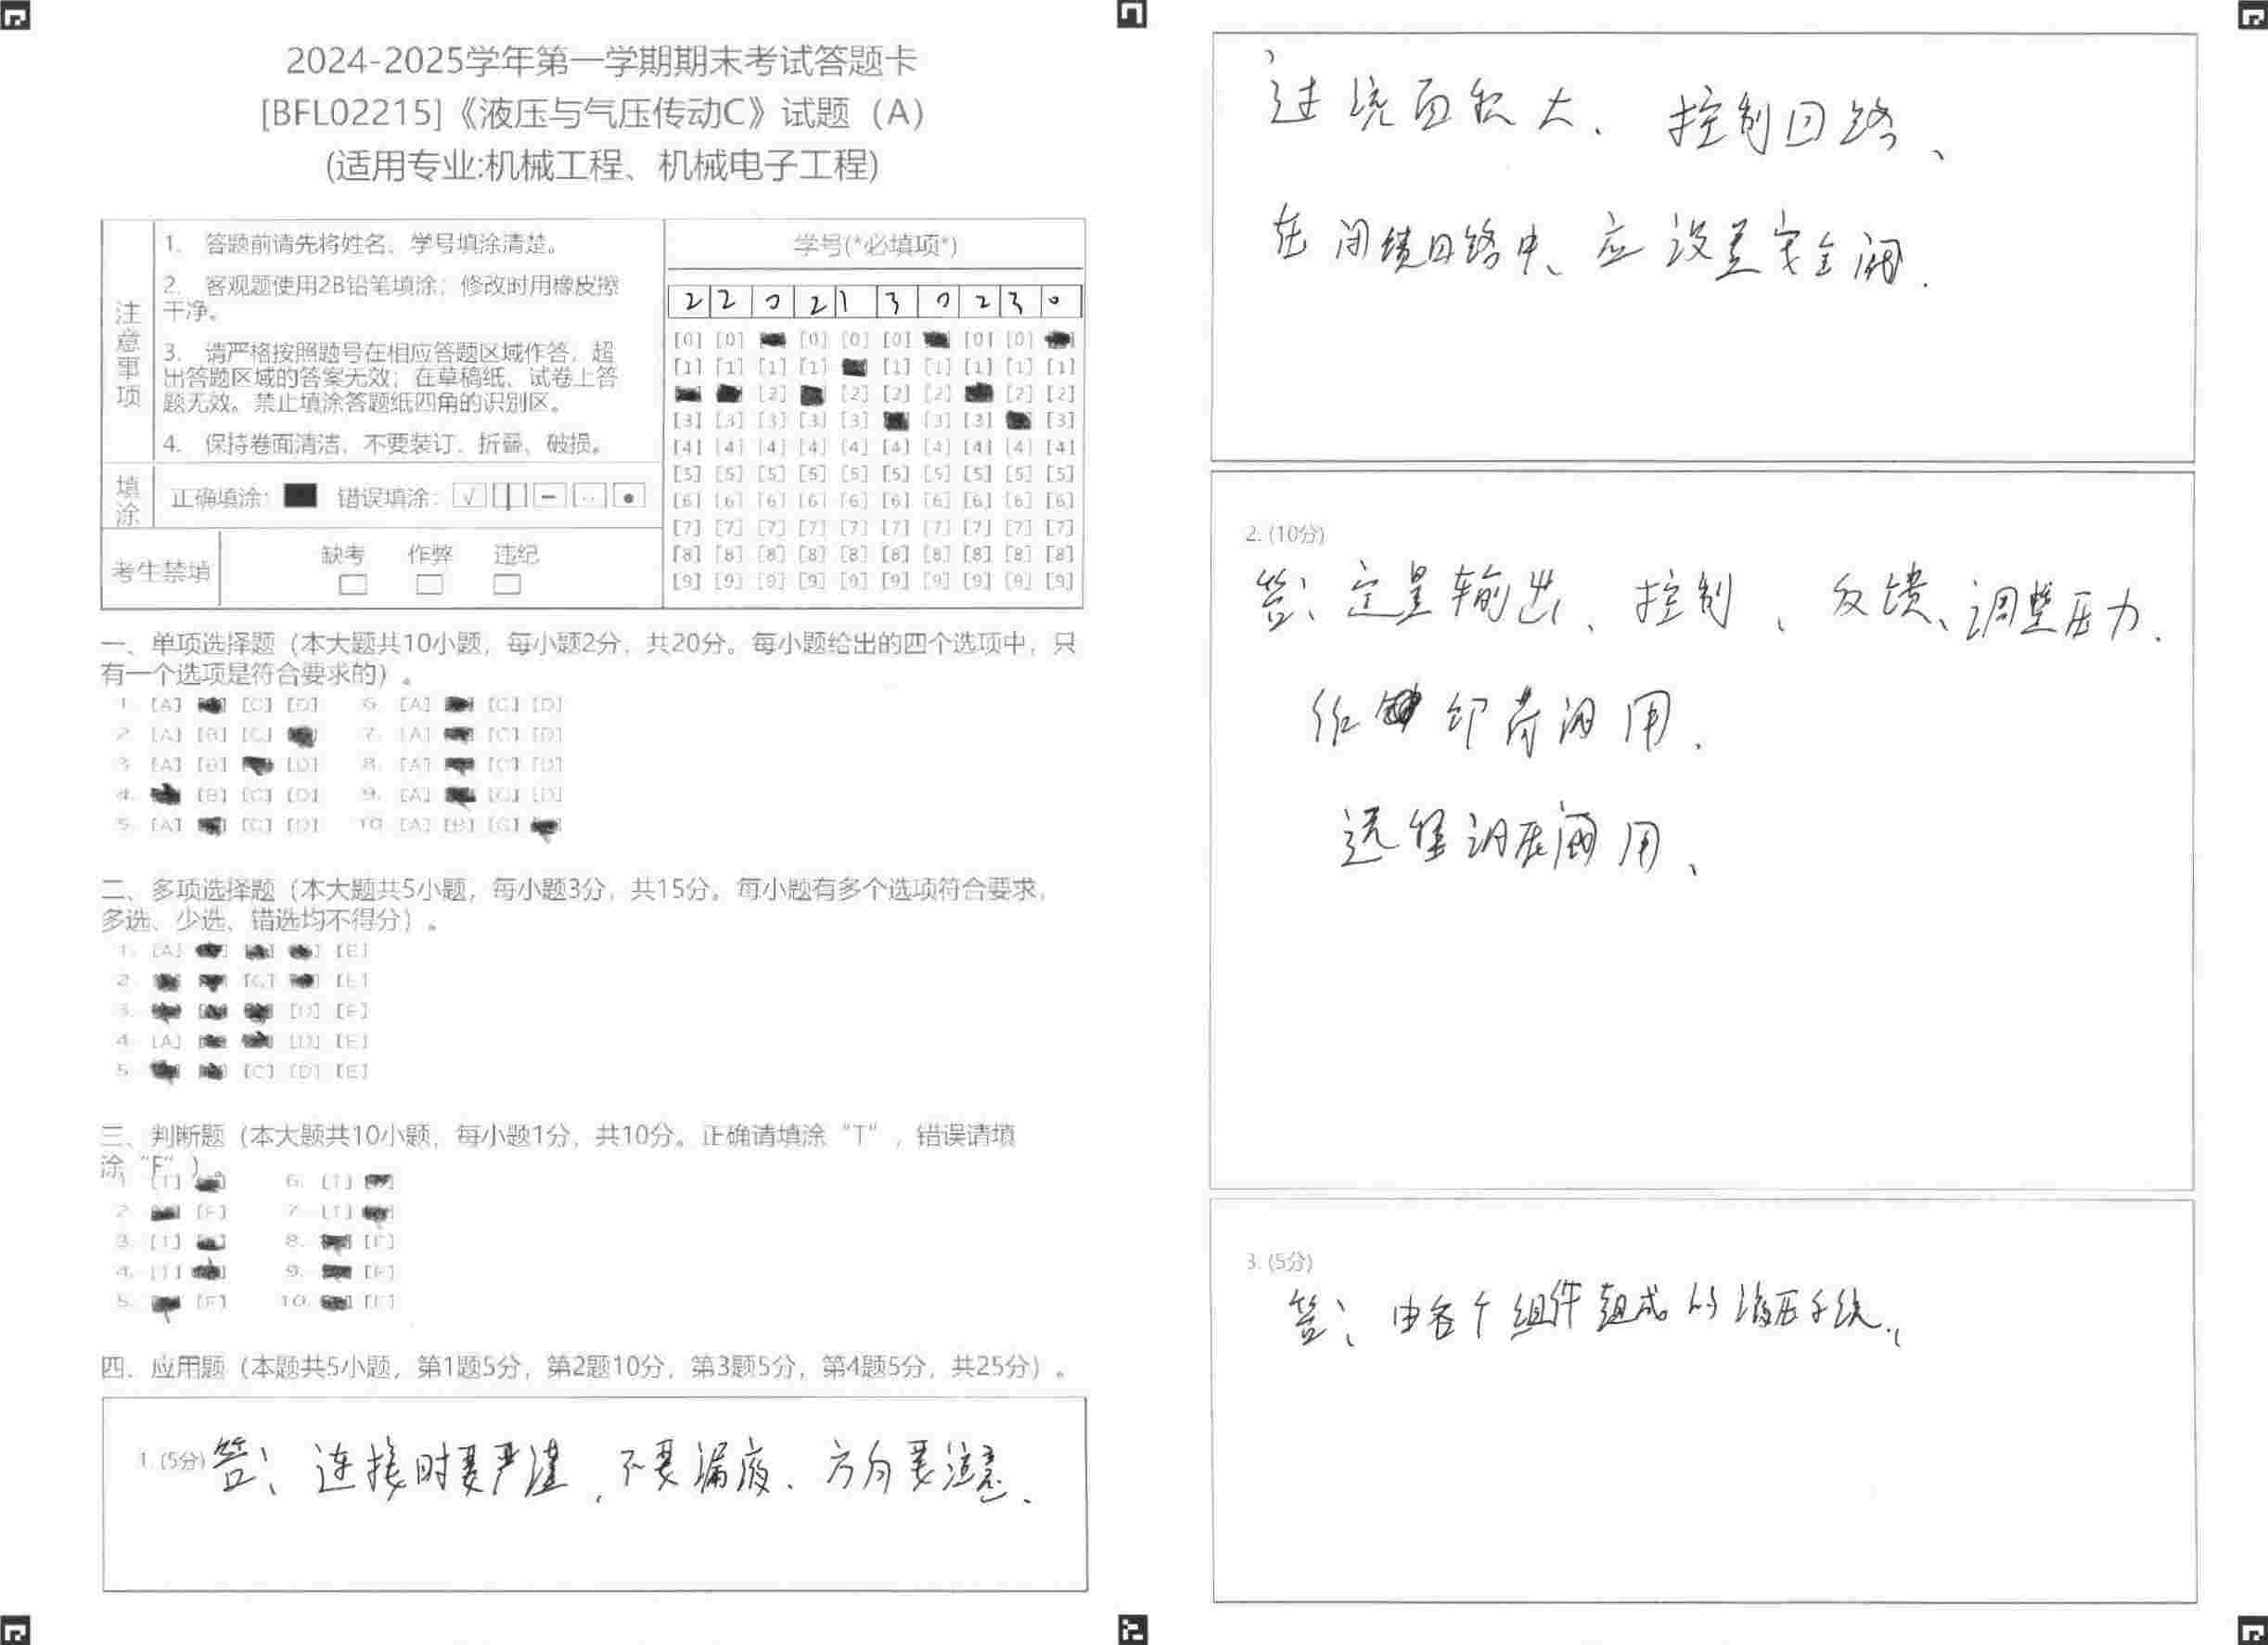 2024-2025学年第一学期期末考试答题卡
[BFL02215]《液压与气压传动C》试题（A）
(适用专业:机械工程、机械电子工程)
注意事项
1. 答题前请先将姓名、学号填涂清楚。
2. 客观题使用2B铅笔填涂；修改时用橡皮擦
干净。
3. 请严格按照题号在相应答题区域作答，超
出答题区域的答案无效；在草稿纸、试卷上答
题无效。禁止填涂答题纸四角的识别区。
4. 保持卷面清洁，不要装订、折叠、破损。
填涂
正确填涂： 错误填涂：
考生禁填
缺考 作弊 违纪
学号(*必填项*)
2 2 0 2 1 3 0 2 3 0
[0] [0] [0] [0] [0] [0] [0]
[1] [1] [1] [1] [1] [1] [1] [1] [1]
[2] [2] [2] [2] [2] [2]
[3] [3] [3] [3] [3] [3] [3] [3]
[4] [4] [4] [4] [4] [4] [4] [4] [4] [4]
[5] [5] [5] [5] [5] [5] [5] [5] [5] [5]
[6] [6] [6] [6] [6] [6] [6] [6] [6] [6]
[7] [7] [7] [7] [7] [7] [7] [7] [7] [7]
[8] [8] [8] [8] [8] [8] [8] [8] [8] [8]
[9] [9] [9] [9] [9] [9] [9] [9] [9] [9]
一、单项选择题（本大题共10小题，每小题2分，共20分。每小题给出的四个选项中，只
有一个选项是符合要求的）。
1. [A] [C] [D] 6. [A] [C] [D]
2. [A] [B] [C] 7. [A] [C] [D]
3. [A] [B] [D] 8. [A] [C] [D]
4. [B] [C] [D] 9. [A] [C] [D]
5. [A] [C] [D] 10. [A] [B] [C]
二、多项选择题（本大题共5小题，每小题3分，共15分。每小题有多个选项符合要求，
多选、少选、错选均不得分）。
1. [A] [E]
2. [C] [E]
3. [D] [E]
4. [A] [D] [E]
5. [C] [D] [E]
三、判断题（本大题共10小题，每小题1分，共10分。正确请填涂“T”，错误请填
涂“F”）。
1. [T] 6. [T]
2. [F] 7. [T]
3. [T] 8. [F]
4. [T] 9. [F]
5. [F] 10. [F]
四、应用题（本题共5小题，第1题5分，第2题10分，第3题5分，第4题5分，共25分）。
1. (5分) 答：连接时要严谨，不要漏液．方向要注意．
过 面积大、控制回路、
在 回路中、应设置安全阀．
2. (10分)
答：定量输出、控制、反馈、调整压力．
作 卸荷阀用．
远程调压阀用、
3. (5分)
答：由各个组件组成的液压系统．